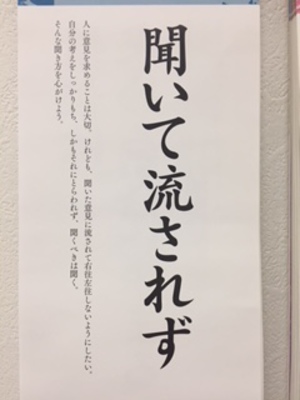 聞いて流されず
人に意見を求めることは大切。けれども、聞いた意見に流されて右往左往しないようにしたい。
自分の考えをしっかりもち、しかもそれにとらわれず、聞くべきは聞く。
そんな聞き方を心がけよう。